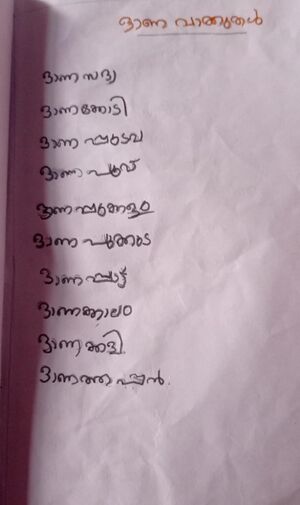 ഓണ വാക്കുകൾ
ഓണ സദ്യ
ഓണക്കോടി
ഓണ പ്പുടവ
ഓണ പൂവ്
ഓണ പ്പൂക്കളം
ഓണ പൂക്കുട
ഓണ പ്പാട്ട്
ഓണക്കാലം
ഓണക്കളി
ഓണത്ത പ്പൻ.